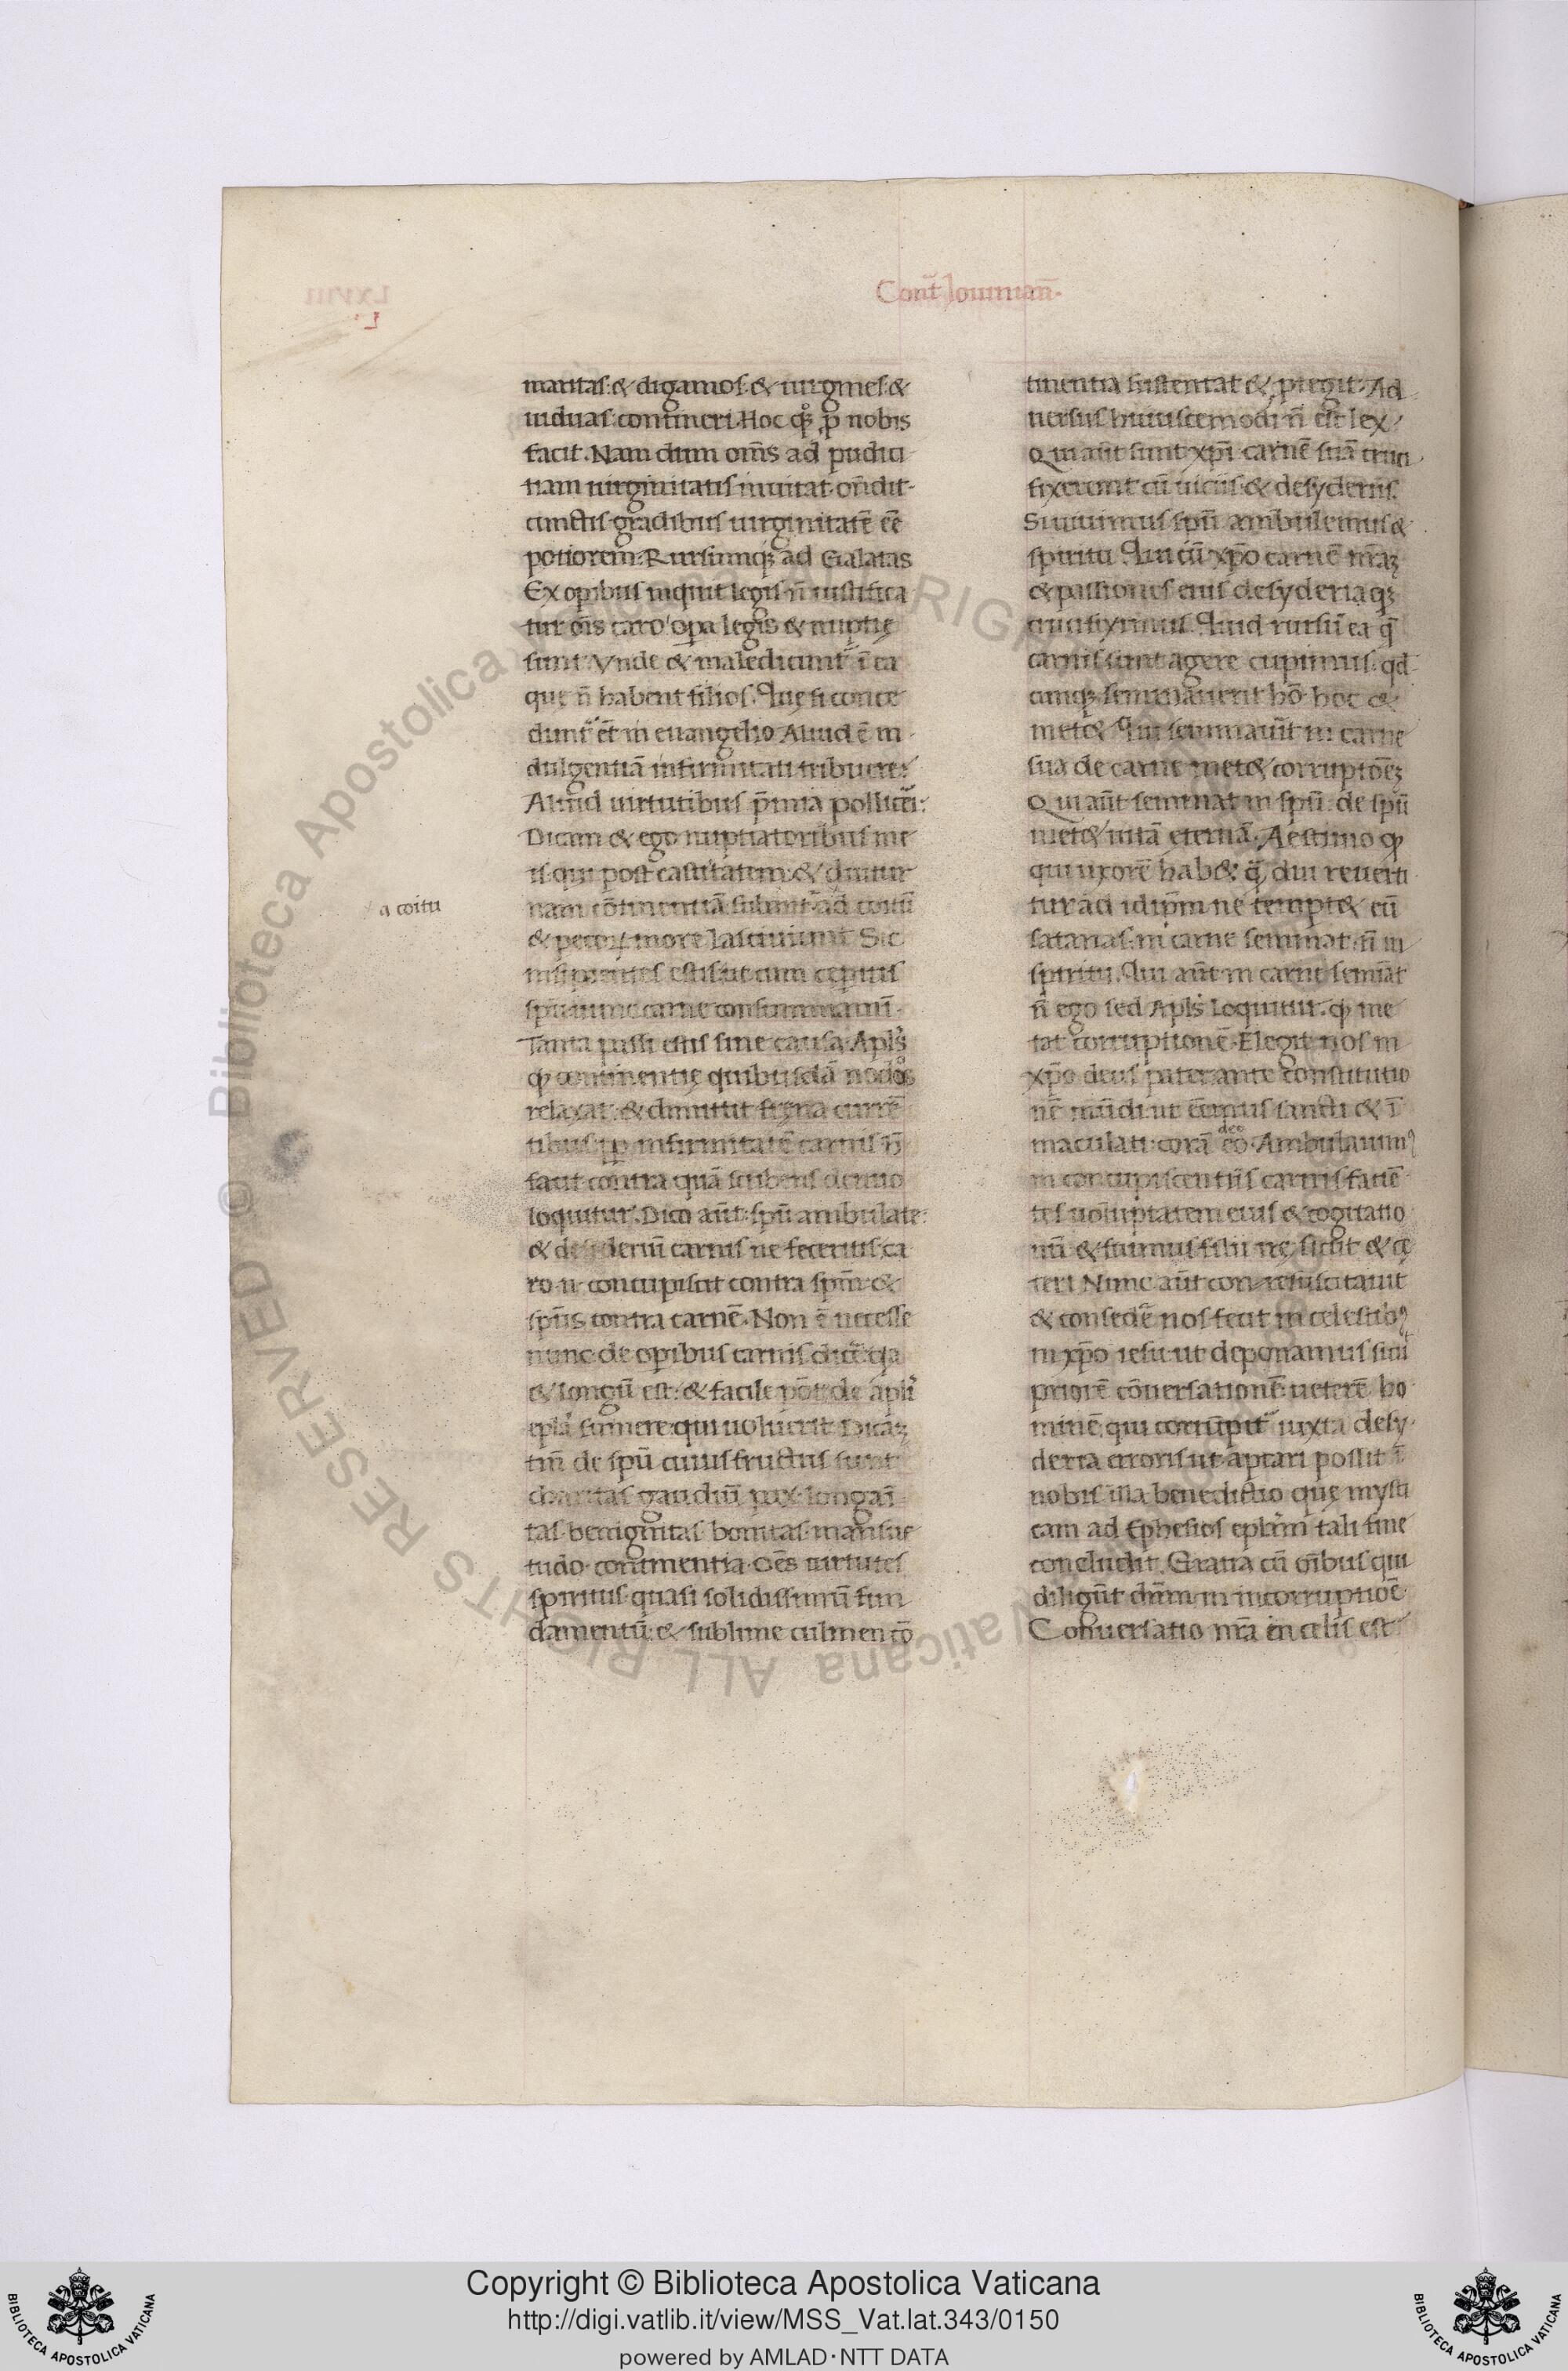 Cont̄ Iouinian̄·
maritas·& digamos·& uirgines·&
uiduas·contineri·Hoc qͦꝫ ꝓ nobis
facit. Nam dum om̄s ad pudici
tiam uirginitatis inuitat·on̄dit·
cunctis gradibus uirginitatē eē̄
potiorem·Rursumqꝫ ad Galatas
Ex oꝑibus inquit legis n̄ iustifica
tur ōis caro·oꝑa legis & nuptię
sunt·Vnde & maledicunt᷑ ī ea
que n̄ habent filios. Quę si conce
dunt᷑ ēt in euangelio Aliud ē in
dulgentiā infirmitati tribuere:
Aliud uirtutibus p̄mia polliceri:
Dicam & ego nuptiatoribus me
is·qui post castitatem·& diutur
nam cōtinentiā subant᷑ ad coitū
a coitu
& pecoꝝ more lasciuiunt Sic
insipientes estis·ut cum cepitis
sp̄u nunc carne consummamī·
Tanta passi estis sine causa·Apl̄s
qđ continentię quibusdā nodos
relaxat·& dimittit frena curre᷑
tibus·ꝓp̄ infirmitatē carnis n̄
facit contra quā scribens denuo
loquitur·Dico aūt·sp̄u ambulate:
& desiderium carnis ne feceritis·ca
ro·n· concupiscit contra sp̄m·&
sp̄us contra carnē·Non ē necesse
nunc de oꝑibus carnis dicē·qa
& longū est·& facile pōt de apl̄i
epl̄a sumere·qui uoluerit Dicāꝫ
tm̄ de sp̄u cuius fructus sunt
charitas gaudiū pax·longaī
tas·benignitas·bonitas·mansue
tudo·continentia·Oēs uirtutes
spiritus·quasi solidissimū fun
damentū·& sublime culmen cō
tinentia sustentat & ꝑtegit·Ad
uersus huiuscemodi n̄ est lex·
Qui aūt sunt xp̄i·carnē suā cruci
fixerunt cū uiciis·& desyderiis.
Si uiuimus sp̄u ambulemus &
spiritu Qui cū xp̄o carnē nr̄aꝫ
& passiones eius desyderiaqꝫ
crucifiximus. Quid rursū ea q̄
carnis sunt agere cupimus·qđ
cunqꝫ seminauerit hō·hoc &
met& Qui seminauīt in carne
sua de carne met& corruptōeꝫ
Qui aūt seminat in sp̄u·de sp̄u
met& uitā eternā·Aestimo qđ
qui uxorē hab&·q̄ diu reuerti
tur ad idip̄m ne tempt& eū
satanas·in carne seminat·n̄ in
spiritu·Qui aūt in carne semīat
n̄ ego sed Apl̄s loquitur·qđ me
tat corruptionē·Elegit nos in
xp̄o deus pater·ante constitutio
nē mūdi·ut eēmus sancti & ī
deo
maculati·corā eo·Ambulauim᷒
in concupiscentiis carnis faciē
tes uoluptatem eius & cogitatio
nū & fuimus filii irę·sicut & cę
teri Nunc aūt con resuscitauit
& consedē nos fecit in celestib᷒
in xp̄o iesu·ut deponamus scđi
priorē cōuersationē·ueterē ho
minē·qui corrūpit᷑ iuxta desy
deria erroris·ut aptari possit ī
nobis illa benedictio quę mysti
cam ad Ephesios epl̄am tali fine
concludit. Gratia cū om̄ibus qui
diligūt dn̄m in incorruptiōe·
Conuersatio nr̄a in celis est